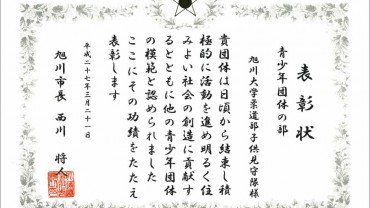 表彰状
青少年団体の部
旭川大学柔道部子供見守隊様
貴団体は日頃から結束し積
極的に活動を進め明るく住
みよい社会の創造に貢献す
るとともに他の青少年団体
の模範と認められました
ここにその功績をたたえ
表彰します
平成二十七年三月二十一日
旭川市長 西川 将人